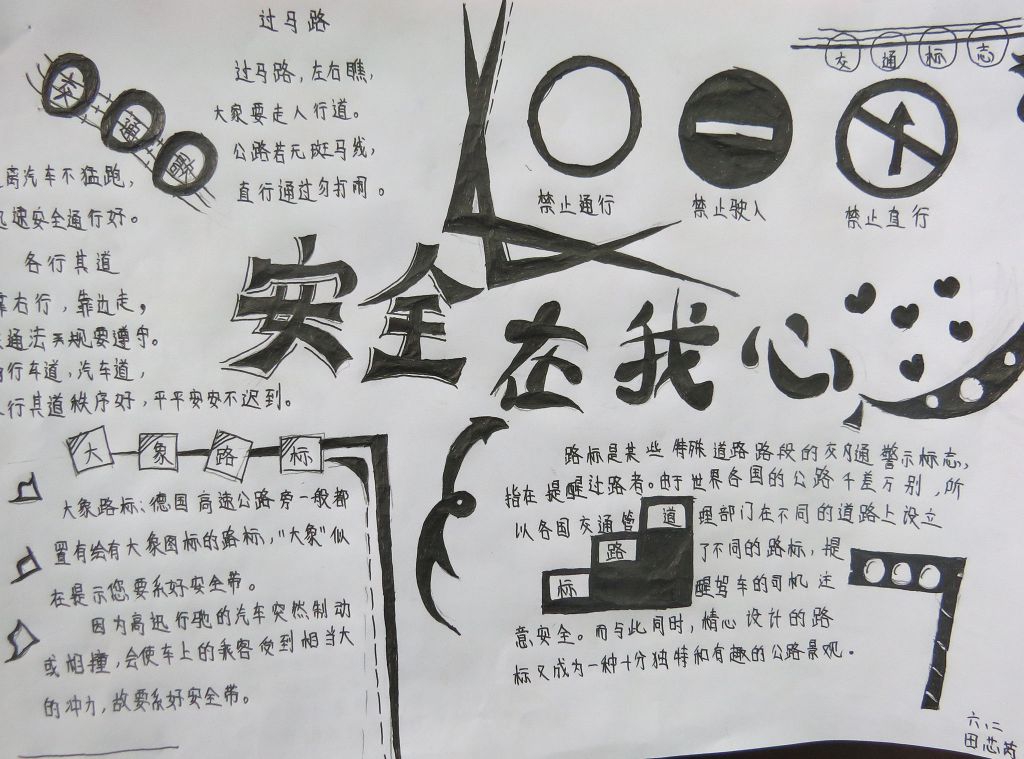 过马路
过马路，左右瞧，
大象要走人行道。
公路若无斑马线，
直行通过勿打闹。
交通
离汽车不猛跑，
速安全通行好。
各行其道
靠右行，靠边走。
通法规要遵守。
行车道，汽车道，
行其道秩序好，平平安安不迟到。
交通标志
禁止通行
禁止驶入
禁止直行
安全在我心
大象路标
大象路标：德国高速公路旁一般都
置有绘有大象图标的路标，"大象"似
在提示您要系好安全带。
因为高速行驰的汽车突然制动
或相撞，会使车上的乘客受到相当大
的冲力，故要系好安全带。
路标是某些特殊道路路段的交通警示标志，
指在提醒过路者。由于世界各国的公路千差万别，所
以各国交通管理部门在不同的道路上设立
了不同的路标，提
醒驾车的司机注
意安全。而与此同时，精心设计的路
标又成为一种十分独特和有趣的公路景观。
道
路
标
六、二
田芯芮